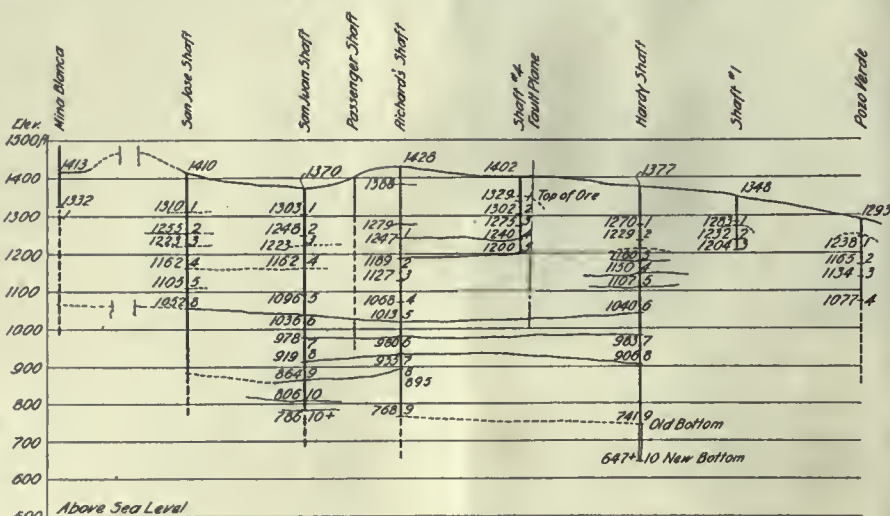 Mina Blanca
San Jose Shaft
San Juan Shaft
Passenger Shaft
Richard's Shaft
Shaft #4
Fault Plane
Hardy Shaft
Shaft #1
Pozo Verde
Elev.
1500 ft
1400
1300
1200
1100
1000
900
800
700
600
500
1413
1332
1410
1310 1
1255 2
1223 3
1162 4
1105 5
1052 8
1370
1303 1
1248 2
1223 3
1162 4
1096 5
1036 6
978 7
919 8
864 9
806 10
786 10+
1428
1388
1279
1247 1
1189 2
1127 3
1068 4
1013 5
980 6
933 7
8
895
768 9
1402
1329 1 Top of Ore
1302 2
1275 3
1240 4
1200 5
1377
1270 1
1229 2
1186 3
1150 4
1107 5
1040 6
983 7
906 8
741 9 Old Bottom
647+ 10 New Bottom
1348
1283 1
1232 2
1204 3
1293
1238 1
1165 2
1134 3
1077 4
Above Sea Level